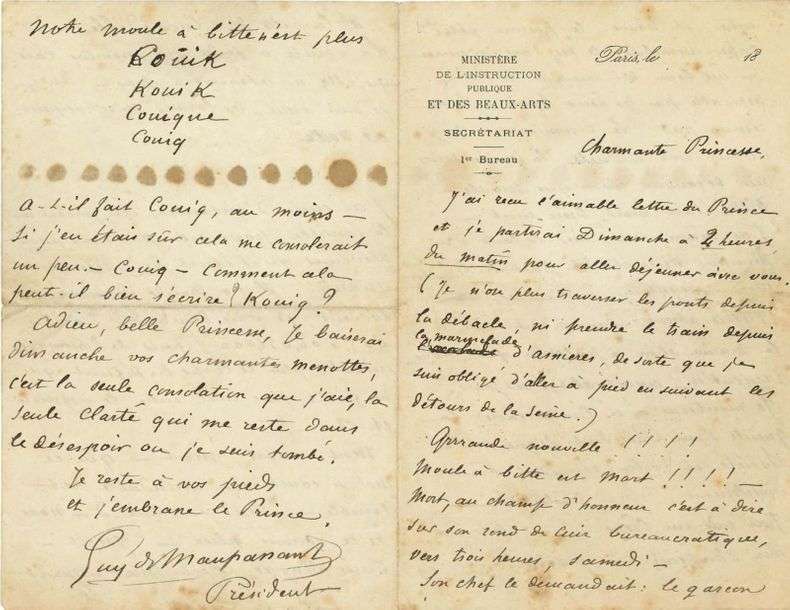 MINISTÈRE
DE L'INSTRUCTION
PUBLIQUE
ET DES BEAUX-ARTS
SECRÉTARIAT
1er Bureau
Paris, le 18
Charmante Princesse,
J'ai reçu l'aimable lettre du Prince
et je partirai Dimanche à 2 heures
du matin pour aller déjeuner avec vous.
(Je n'ose plus traverser les ponts depuis
la débacle, ni prendre le train depuis
la marmelade d'asnieres, de sorte que je
suis obligé d'aller à pied en suivant les
détours de la seine.)
Grrrande nouvelle ! ! ! !
Moule à bitte est mort ! ! ! ! —
Mort, au champ d'honneur c'est à dire
sur son rond de cuir bureaucratique,
vers trois heures, samedi —
Son chef le demandait : le garçon
Notre moule à bitte n'est plus
Koüik
Kouik
Couique
Couiq
a-t-il fait Couiq, au moins —
Si j'en étais sûr cela me consolerait
un peu. — Couiq — Comment cela
peut-il bien s'écrire ? Kouiq ?
Adieu, belle Princesse, Je baiserai
dimanche vos charmantes menottes,
c'est la seule consolation que j'aie, la
seule clarté qui me reste dans
le désespoir ou je suis tombé.
Je reste à vos pieds
et j'embrasse le Prince.
Guy de Maupassant
Président